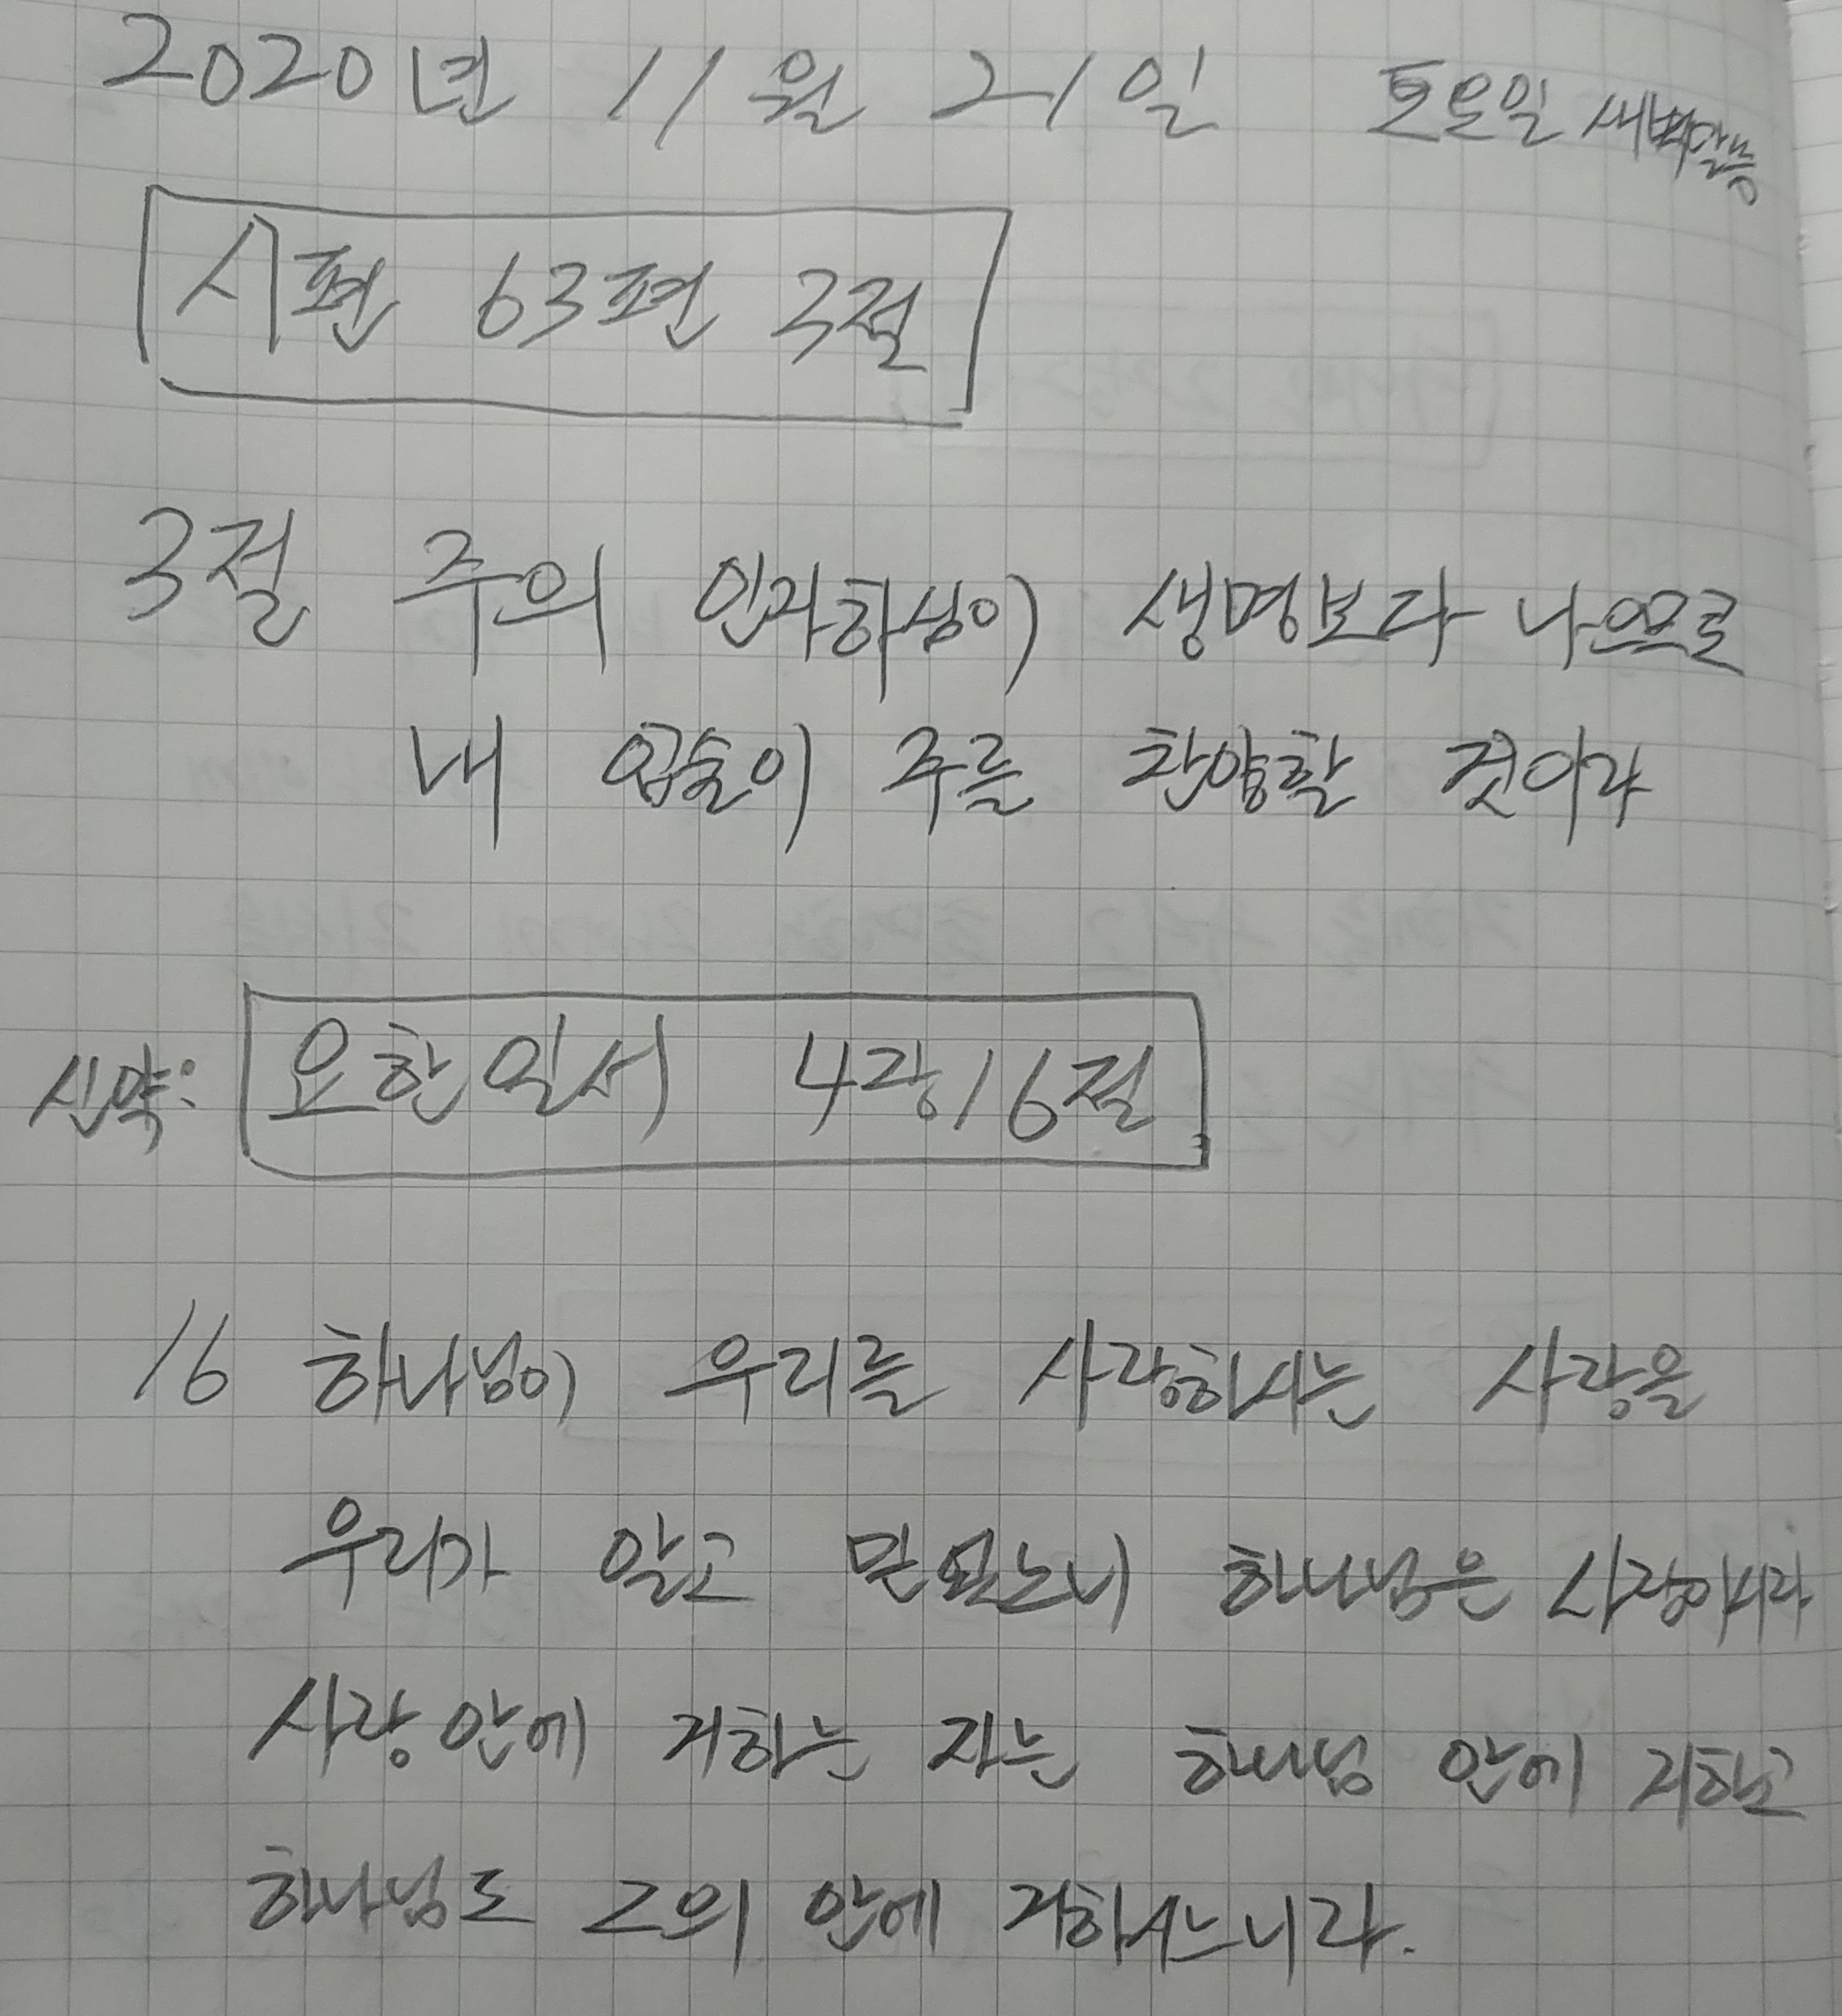 2020년 11월 21일 토요일 새벽말씀
시편 63편 3절
3절 주의 인자하심이 생명보다 나으므로
내 입술이 주를 찬양할 것이라
신약: 요한일서 4장 16절
16 하나님이 우리를 사랑하시는 사랑을
우리가 알고 믿었노니 하나님은 사랑이시라
사랑 안에 거하는 자는 하나님 안에 거하고
하나님도 그의 안에 거하시느니라.